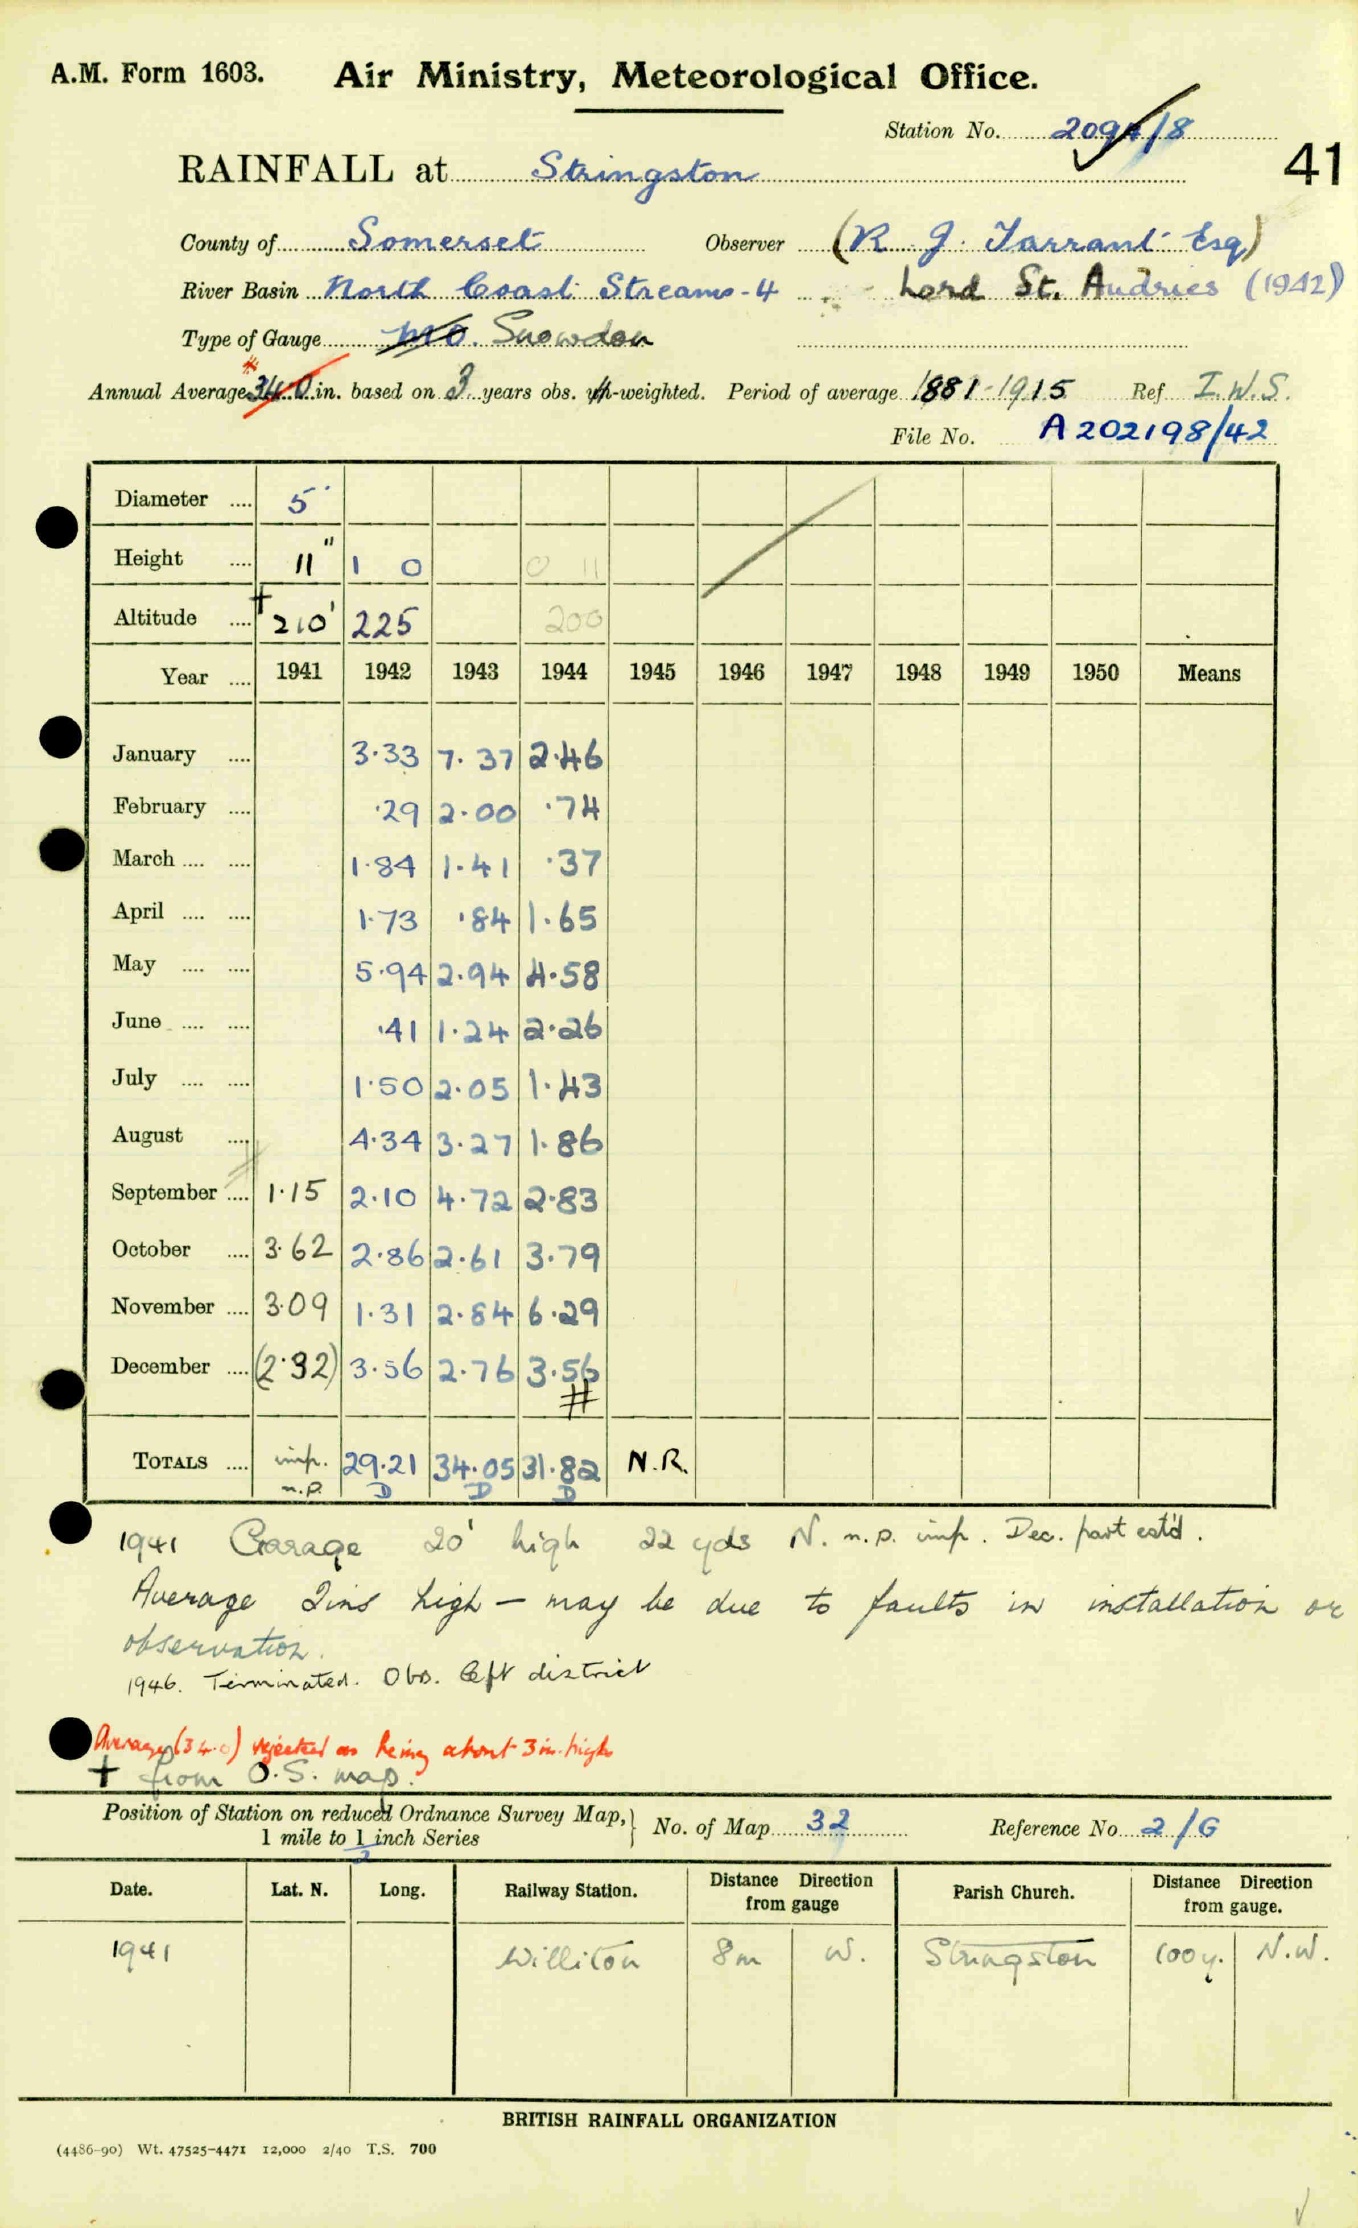 A.M. Form 1603. Air Ministry, Meteorological Office.
Station No. 2094/8
41
RAINFALL at Stringston
County of Somerset Observer (R J. Farrant Esq)
River Basin North Coast Streams-4 Lord St. Audries (1942)
Type of Gauge M.O. Snowdon
Annual Average 34.0 in. based on 3 years obs. un-weighted. Period of average 1881-1915 Ref I.W.S.
File No. A202198/42
Diameter .... 5
Height .... 11" 1 0 0 11
Altitude .... + 210' 225 200
Year .... 1941 1942 1943 1944 1945 1946 1947 1948 1949 1950 Means
January .... 3.33 7.37 2.46
February .... .29 2.00 .74
March .... .... 1.84 1.41 .37
April .... .... 1.73 .84 1.65
May .... .... 5.94 2.94 4.58
June .... .... .41 1.24 2.26
July .... .... 1.50 2.05 1.43
August .... 4.34 3.27 1.86
September .... 1.15 2.10 4.72 2.83
October .... 3.62 2.86 2.61 3.79
November .... 3.09 1.31 2.84 6.29
December .... (2.32) 3.56 2.76 3.56
#
TOTALS .... imp. 29.21 34.05 31.82 N.R.
n.p. D D D
1941 Garage 20' high 22 yds N. n.p. imp. Dec. part est'd.
Average 2ins high – may be due to faults in installation or
observation.
1946. Terminated. Obs. left district
Average (34.0) rejected as being about 3in. high
+ from O.S. map.
Position of Station on reduced Ordnance Survey Map, No. of Map 32 Reference No 2/G
1 mile to 1/2 inch Series
Date. Lat. N. Long. Railway Station. Distance from gauge Direction Parish Church. Distance from gauge. Direction
1941 Williton 8m W. Stringston 100y. N.W.
BRITISH RAINFALL ORGANIZATION
(4486-90) Wt. 47525-4471 12,000 2/40 T.S. 700